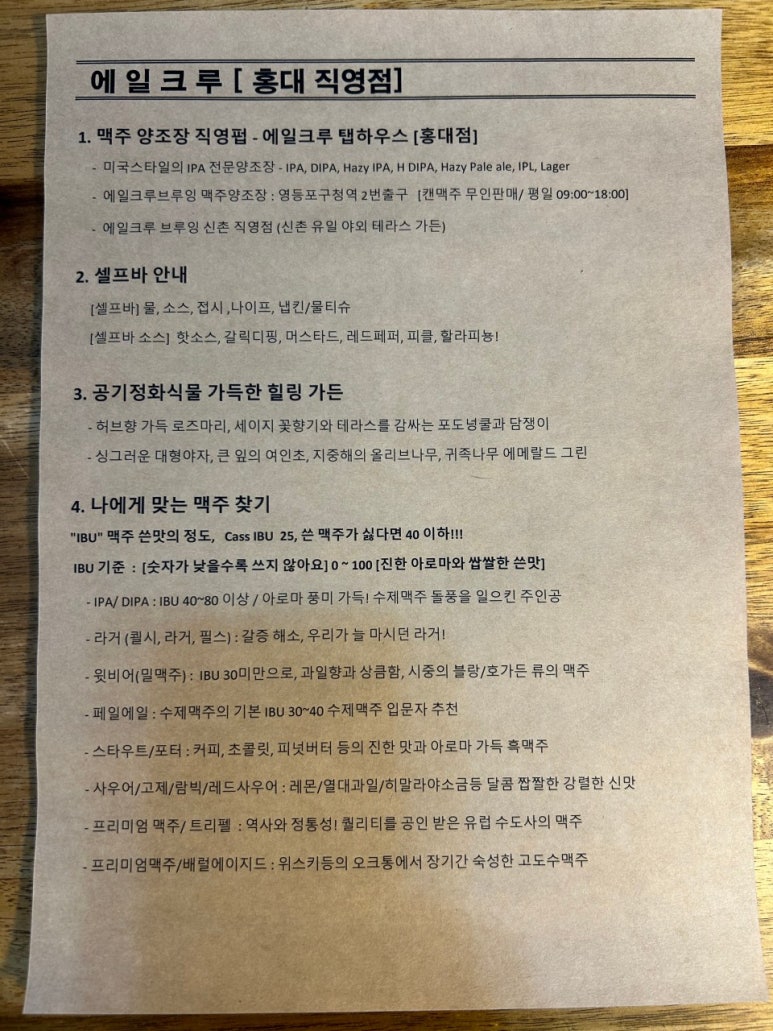 에 일 크 루 [ 홍대 직영점]
1. 맥주 양조장 직영펍 - 에일크루 탭하우스 [홍대점]
- 미국스타일의 IPA 전문양조장 - IPA, DIPA, Hazy IPA, H DIPA, Hazy Pale ale, IPL, Lager
- 에일크루브루잉 맥주양조장 : 영등포구청역 2번출구 [캔맥주 무인판매/ 평일 09:00~18:00]
- 에일크루 브루잉 신촌 직영점 (신촌 유일 야외 테라스 가든)
2. 셀프바 안내
[셀프바] 물, 소스, 접시 ,나이프, 냅킨/물티슈
[셀프바 소스] 핫소스, 갈릭디핑, 머스타드, 레드페퍼, 피클, 할라피뇽!
3. 공기정화식물 가득한 힐링 가든
- 허브향 가득 로즈마리, 세이지 꽃향기와 테라스를 감싸는 포도넝쿨과 담쟁이
- 싱그러운 대형야자, 큰 잎의 여인초, 지중해의 올리브나무, 귀족나무 에메랄드 그린
4. 나에게 맞는 맥주 찾기
"IBU" 맥주 쓴맛의 정도, Cass IBU 25, 쓴 맥주가 싫다면 40 이하!!!
IBU 기준 : [숫자가 낮을수록 쓰지 않아요] 0 ~ 100 [진한 아로마와 쌉쌀한 쓴맛]
- IPA/ DIPA : IBU 40~80 이상 / 아로마 풍미 가득! 수제맥주 돌풍을 일으킨 주인공
- 라거 (퀠시, 라거, 필스) : 갈증 해소, 우리가 늘 마시던 라거!
- 윗비어(밀맥주) : IBU 30미만으로, 과일향과 상큼함, 시중의 블랑/호가든 류의 맥주
- 페일에일 : 수제맥주의 기본 IBU 30~40 수제맥주 입문자 추천
- 스타우트/포터 : 커피, 초콜릿, 피넛버터 등의 진한 맛과 아로마 가득 흑맥주
- 사우어/고제/람빅/레드사우어 : 레몬/열대과일/히말라야소금등 달콤 짭짤한 강렬한 신맛
- 프리미엄 맥주/ 트리펠 : 역사와 정통성! 퀄리티를 공인 받은 유럽 수도사의 맥주
- 프리미엄맥주/배럴에이지드 : 위스키등의 오크통에서 장기간 숙성한 고도수맥주